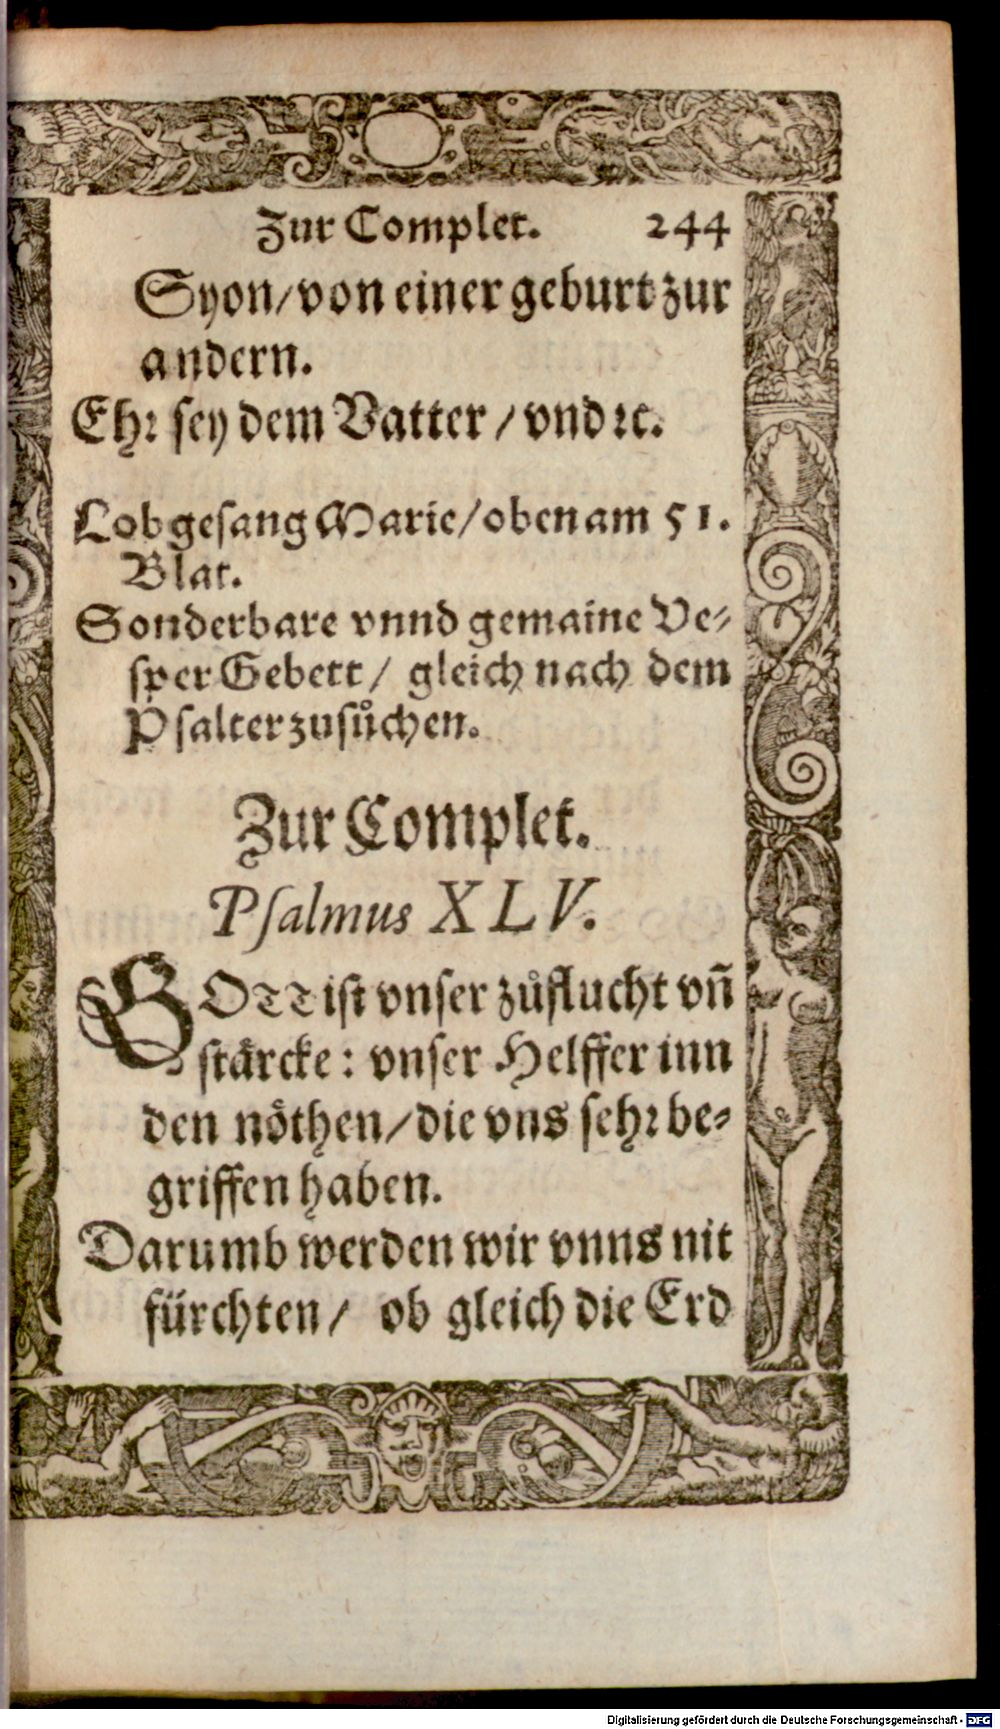 Zur Complet. 244
Syon/ von einer geburt zur
andern.
Ehꝛ sey dem Vatter / vnd ꝛc.
Lobgesang Marie/ oben am 51.
Blat.
Sonderbare vnnd gemaine Ve-
sper Gebett / gleich nach dem
Psalter zusůchen.
Zur Complet.
Psalmus XLV.
GOTT ist vnser zůflucht vñ
stärcke: vnser Helffer inn
den nöthen/ die vns sehꝛ be-
griffen haben.
Darumb werden wir vnns nit
fürchten / ob gleich die Erd
Digitalisierung gefördert durch die Deutsche Forschungsgemeinschaft - DFG